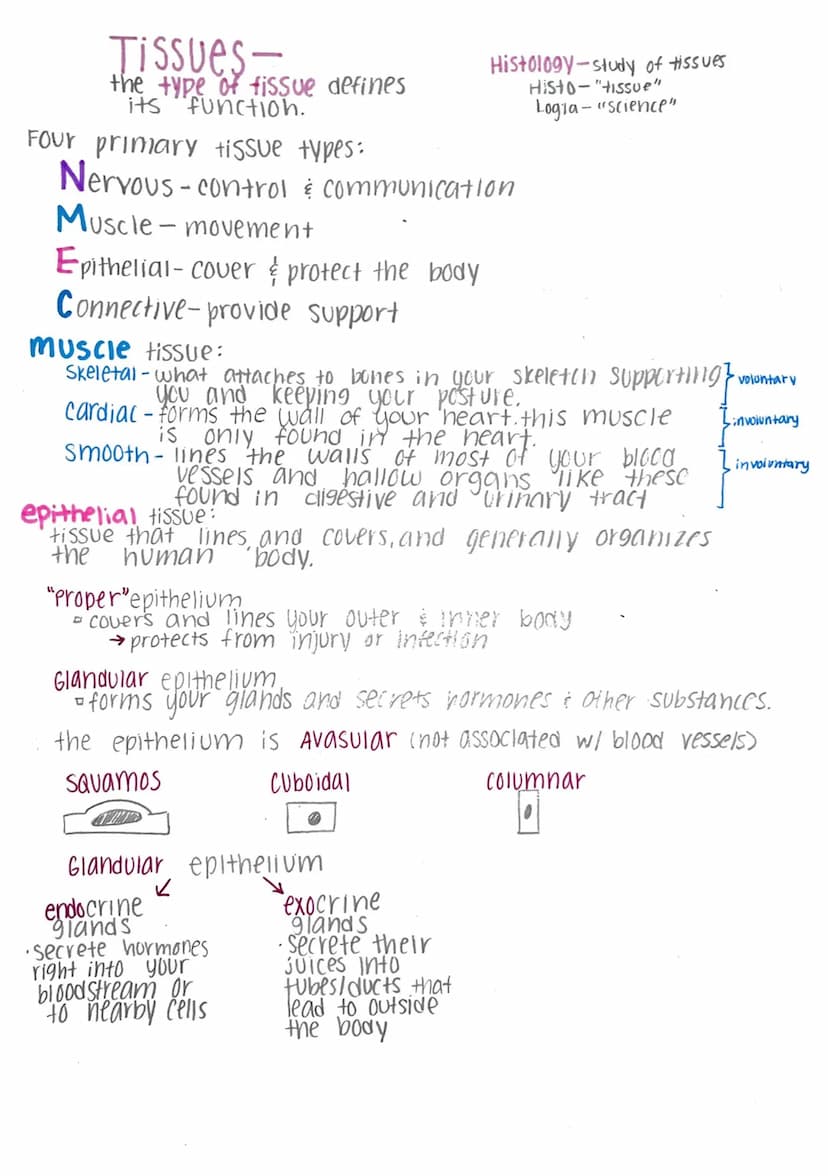 Tissues—
the type of tissue defines
its function.
Histology—study of tissues
Histo—"tissue"
Logia—"science"
Four primary tissue types:
Nervous-control & communication
Muscle—movement
Epithelial-cover & protect the body
Connective-provide support
muscle tissue:
Skeletal-what attaches to bones in your skeleton supporting
you and keeping your posture.
voluntary
Cardiac-forms the wall of your heart.this muscle
is only found in the heart.
involuntary
Smooth-lines the walls of most of your blood
vessels and hallow organs like these
found in digestive and urinary tract
involuntary
epithelial tissue:
tissue that lines, and covers, and generally organizes
the human body.
"Proper" epithelium
covers and lines your outer & inner body
→protects from injury or infection
Glandular epithelium
forms your glands and secrets hormones & other substances.
the epithelium is Avasular (not associated w/ blood vessels)
Squamos
Cuboidal
Columnar
Glandular epithelium
endocrine
glands
·secrete hormones
right into your
bloodstream or
to nearby cells
exocrine
glands
·secrete their
juices into
tubes/ducts that
lead to outside
the body